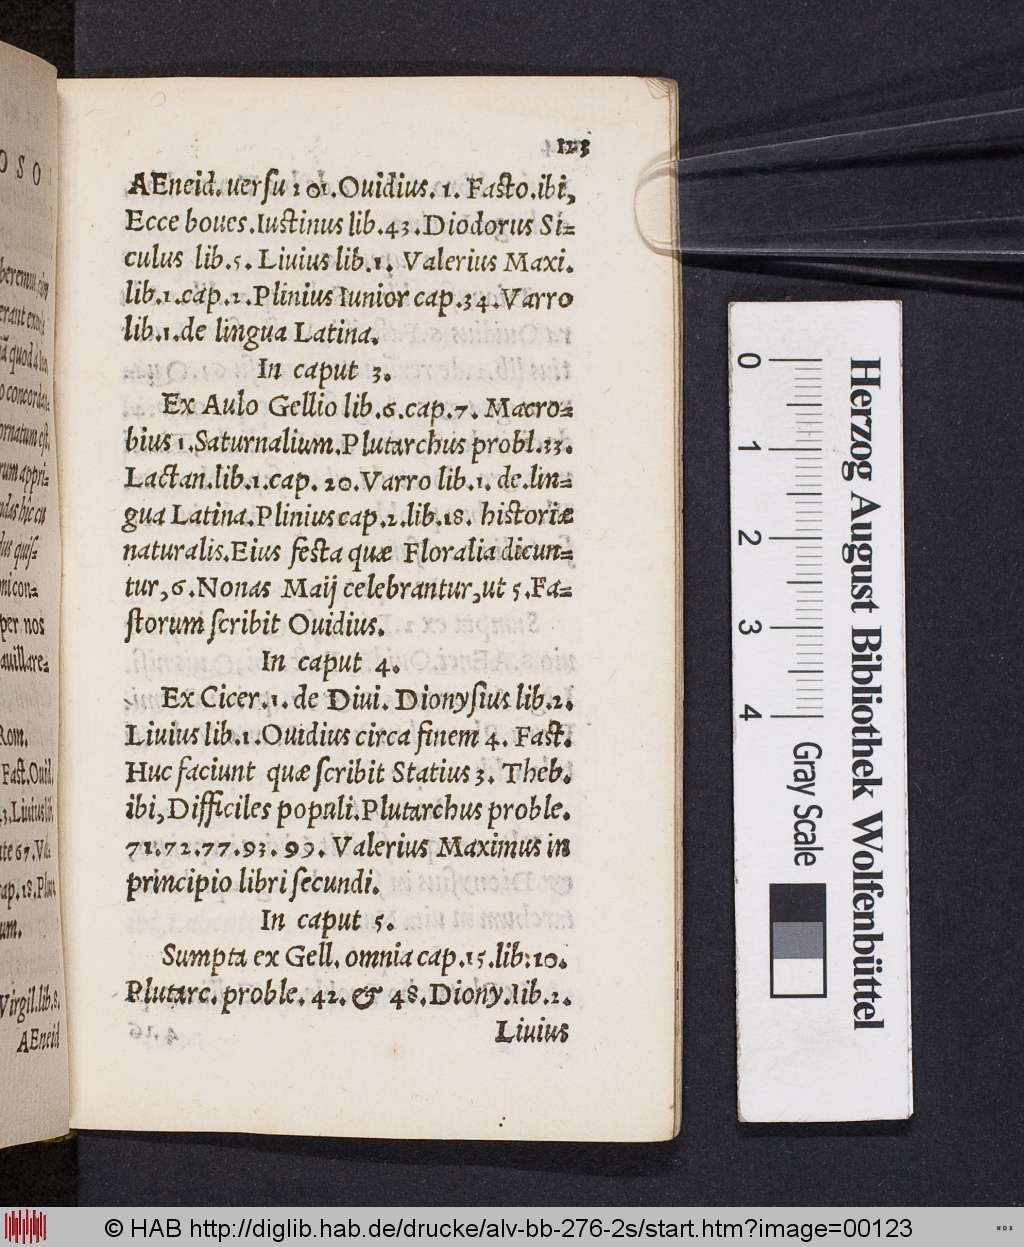 123
AEneid. uersu 101. Ouidius. 1. Fasto. ibi,
Ecce boues. Iustinus lib. 43. Diodorus Si=
culus lib. 5. Liuius lib. 1. Valerius Maxi.
lib. 1. cap. 2. Plinius Iunior cap. 34. Varro
lib. 1. de lingua Latina.
In caput 3.
Ex Aulo Gellio lib. 6. cap. 7. Macro=
bius 1. Saturnalium. Plutarchus probl. 33.
Lactan. lib. 1. cap. 20. Varro lib. 1. de. lin=
gua Latina. Plinius cap. 2. lib. 18. historiæ
naturalis. Eius festa quæ Floralia dicun=
tur, 6. Nonas Maij celebrantur, ut 5. Fa=
storum scribit Ouidius.
In caput 4.
Ex Cicer. 1. de Diui. Dionysius lib. 2.
Liuius lib. 1. Ouidius circa finem 4. Fast.
Huc faciunt quæ scribit Statius 3. Theb.
ibi, Difficiles populi. Plutarchus proble.
71. 72. 77. 93. 99. Valerius Maximus in
principio libri secundi.
In caput 5.
Sumpta ex Gell. omnia cap. 15. lib: 10.
Plutarc. proble. 42. & 48. Diony. lib. 2.
Liuius
OSO
quod a leo.
o concordan=
ornatum est.
rum appri=
dus quis=
ni con=
per nos
auillare=
Rom.
Fast. Ouid.
43. Liuius lib.
cap. 18. Plut
um.
Virgil. lib. 8.
AEneid
0 1 2 3 4 Gray Scale
Herzog August Bibliothek Wolfenbüttel
© HAB http://diglib.hab.de/drucke/alv-bb-276-2s/start.htm?image=00123